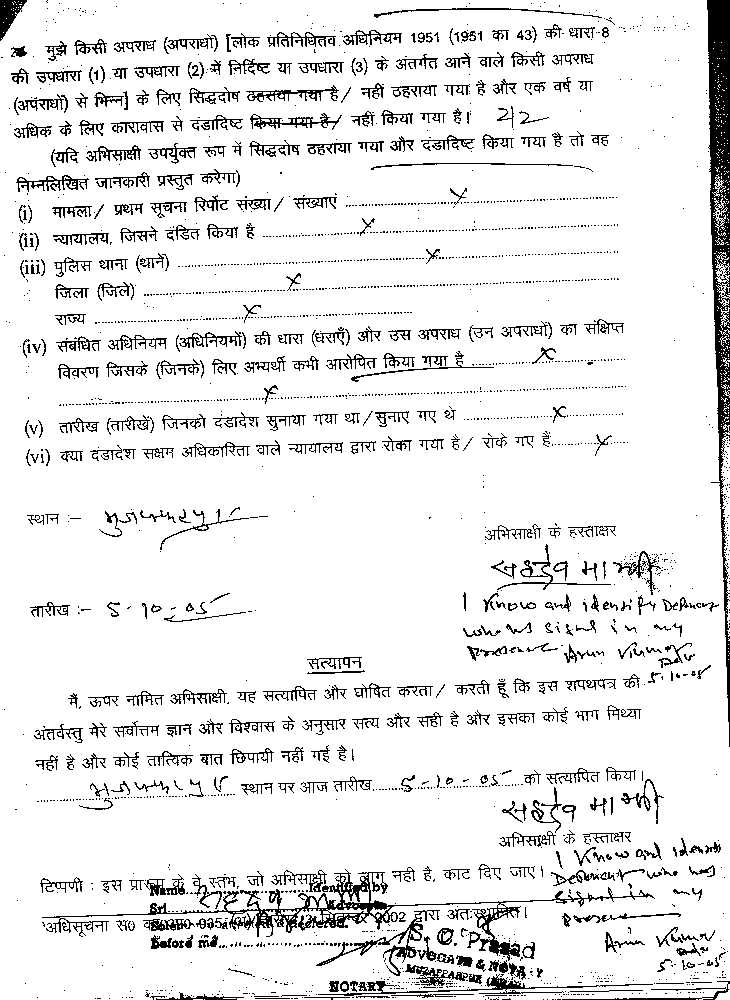 2. मुझे किसी अपराध (अपराधों) [लोक प्रतिनिधितव अधिनियम 1951 (1951 का 43) की धारा-8
की उपधारा (1) या उपधारा (2) में निर्दिष्ट या उपधारा (3) के अंतर्गत आने वाले किसी अपराध
(अपराधों) से भिन्न] के लिए सिद्धदोष ठहराया गया है / नहीं ठहराया गया है और एक वर्ष या
अधिक के लिए कारावास से दंडादिष्ट किया गया है / नहीं किया गया है।
(यदि अभिसाक्षी उपर्युक्त रूप में सिद्धदोष ठहराया गया और दंडादिष्ट किया गया है तो वह
निम्नलिखित जानकारी प्रस्तुत करेगा)
(i) मामला/ प्रथम सूचना रिर्पोट संख्या/ संख्याएं .......... x
(ii) न्यायालय, जिसने दंडित किया है .......... x
(iii) पुलिस थाना (थानें) .......... x
जिला (जिले) .......... x
राज्य .......... x
(iv) संबंधित अधिनियम (अधिनियमों) की धारा (धराएँ) और उस अपराध (उन अपराधों) का संक्षिप्त
विवरण जिसके (जिनके) लिए अभ्यर्थी कभी आरोपित किया गया है .......... x
.......... x
(v) तारीख (तारीखें) जिनको दंडादेश सुनाया गया था/सुनाए गए थे .......... x
(vi) क्या दंडादेश सक्षम अधिकारिता वाले न्यायालय द्वारा रोका गया है/ रोके गए हैं.......... x
स्थान :- मुजफ्फरपुर
अभिसाक्षी के हस्ताक्षर
तारीख :- 5-10-05
I Know and identify Deponent
who has signed in my
Presence Arun Kumar
5-10-05
सत्यापन
मैं, ऊपर नामित अभिसाक्षी, यह सत्यापित और घोषित करता/ करती हूँ कि इस शपथपत्र की
अंतर्वस्तु मेरे सर्वोत्तम ज्ञान और विश्वास के अनुसार सत्य और सही है और इसका कोई भाग मिथ्या
नहीं है और कोई तात्विक बात छिपायी नहीं गई है।
मुजफ्फरपुर स्थान पर आज तारीख 5-10-05 को सत्यापित किया।
अभिसाक्षी के हस्ताक्षर
I Know and identify
Deponent who has
signed in my
Presence
Arun Kumar
5-10-05
टिप्पणी : इस प्रारूप के वे स्तंभ, जो अभिसाक्षी को लागू नही है, काट दिए जाए।
Name Identified by
Sri Advocate
2002 द्वारा अतःस्थापित।
Before me
S. D. Prasad
ADVOCATE & NOTARY
MUZAFFARPUR
NOTARY